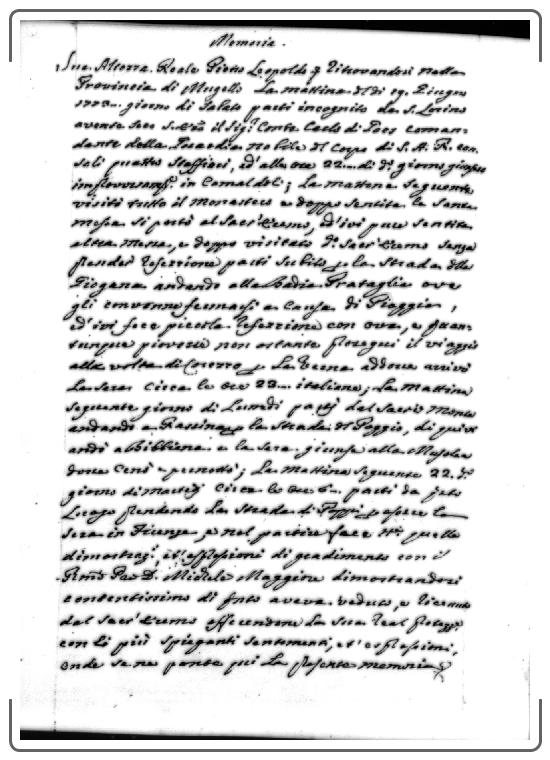 Memoria.
Sua Altezza Reale Pietro Leopoldo p. ritrovandosi nella
Provincia di Mugello La mattina del dì 19. Giugno
1773. giorno di Sabato partì incognito da S. Lorino
avente seco il Sig. Conte Carlo di comandante
dante della nobile del Corpo di S. A. R. con
soli quattro Staffieri, ed' alle ore 22... di dº. giorno giunse
in Comaldoli; La mattina seguente
visitò tutto il Monastero e doppo sentita la Santa
messa si portò al Sacrº Eremo, ed' ivi pure sentita
altra messa, e doppo visitato dº. Sacrº Eremo senza
prender refezzione partì subito p. la strada della
Giogana andando alla Badia Prataglia ove
gli convenne fermarsi a causa di Pioggia,
ed' ivi fece piccola refezzione con ova, e quan-
tunque piovesse non ostante proseguì il viaggio
alla volta di p. La Verna addove arrivò
La sera circa le ore 23... italiane; La mattina
seguente giorno di Lunedì partì dal Sacro Monte
andando a Rassina p. la strada del Poggio, di quivi
andò a Bibbiena e la sera giunse alla Mausolea
dove cenò e pernottò; La mattina seguente 22. dº.
giorno di Martedì circa le ore 6... partì da dº.
Luogo prendendo La strada di Poppi p. essere la
sera in Firenze, e nel partire fece quelle
dimostrazi, et' espressioni di gradimento con il
Rmo Pre D. Michele Maggiore dimostrandosi
contentissimo di quanto aveva veduto, e ricevuto
dal Sacrº Eremo offerendone La sua Real protezz.
con li più spieganti sentimenti, et' espressioni,
onde se ne pone qui La presente memoria